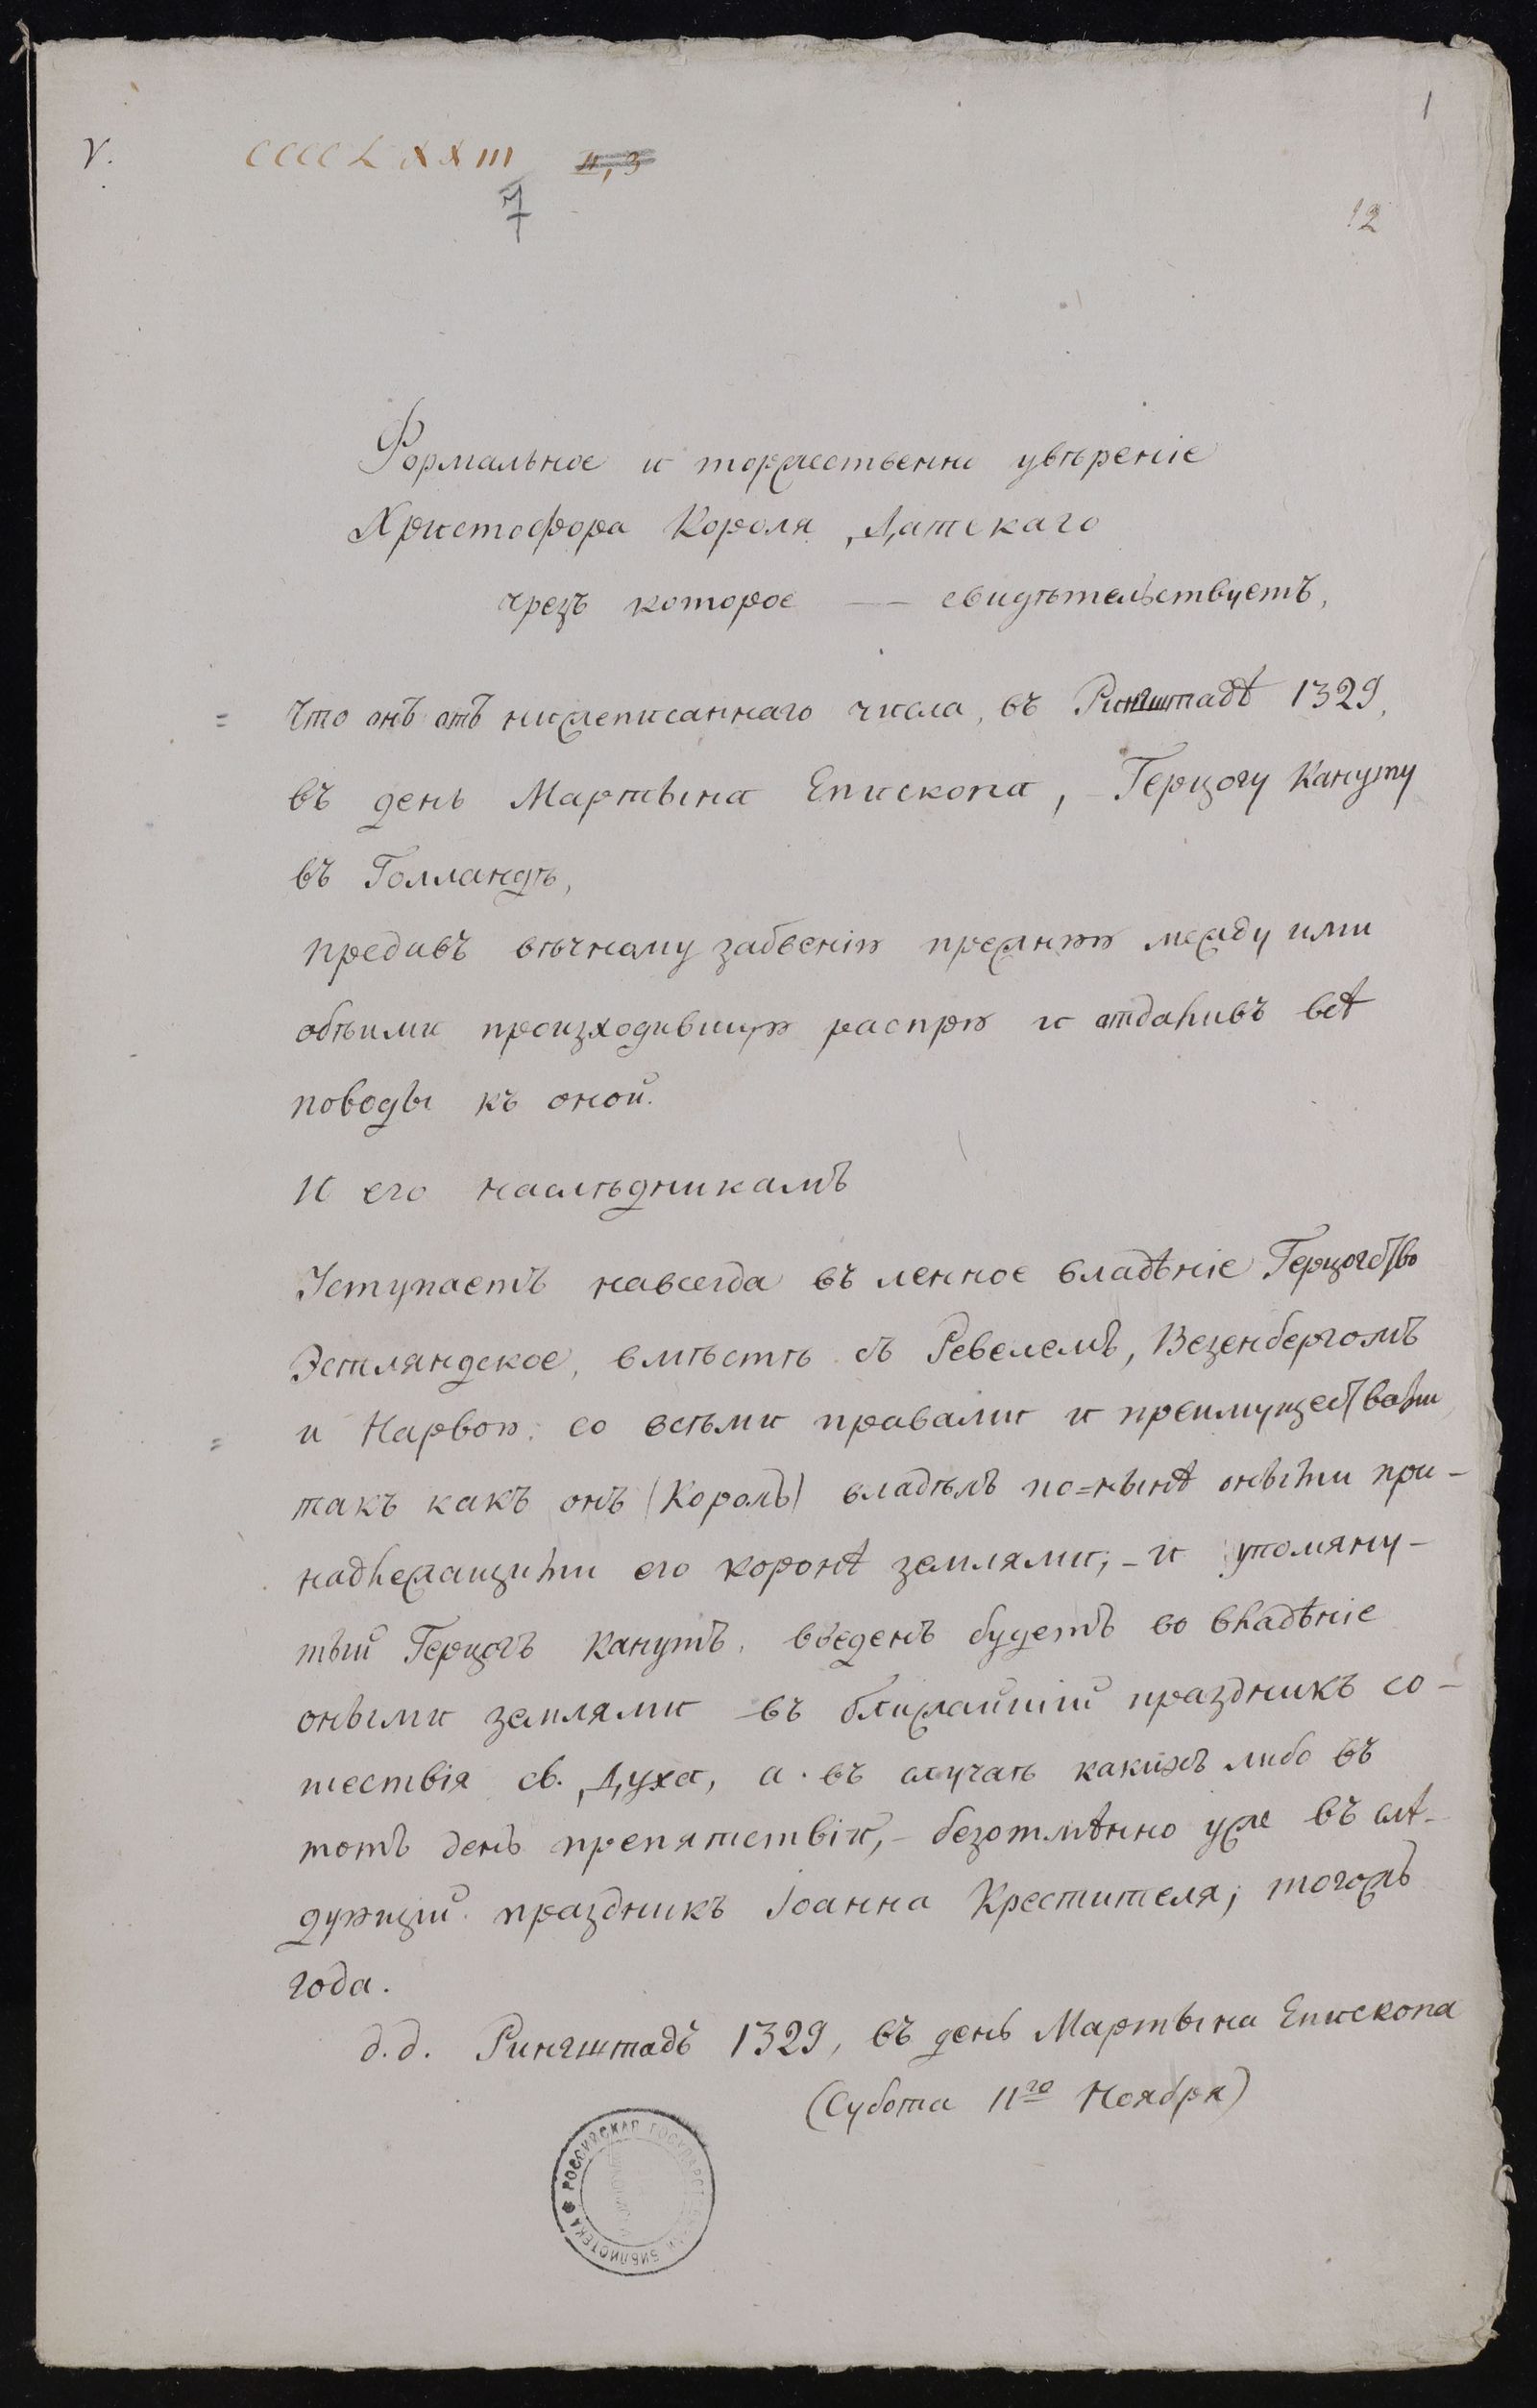 1
V. CCCCLXXIII II, 3
7
12
Формальное и торжественно увѣреніе
Христофора Короля Датскаго
чрезъ которое —— свидѣтельствуетъ,
= Что онъ отъ нижеписаннаго числа, въ Рингштадѣ 1329,
въ день Мартына Епископа, Герцогу Кануту
въ Голландѣ,
предавъ вѣчному забвенію прежнюю между ими
обѣими произходившую распрю и отдаливъ всѣ
поводы къ оной.
И его наслѣдникамъ
Уступаетъ навсегда въ ленное владѣніе Герцогство
Эстляндское, вмѣстѣ съ Ревелемъ, Везенбергомъ
= и Нарвою, со всѣми правами и преимуществами
такъ какъ онъ (Король) владѣлъ по=нынѣ оными при-
надлежащими его коронѣ землями; - и упомяну-
тый Герцогъ Канутъ, введенъ будетъ во владѣніе
оными землями въ ближайшій праздникъ со-
шествія св. Духа, а въ случаѣ какихъ либо въ
тотъ день препятствій, - безотмѣнно уже въ слѣ-
дующій праздникъ Іоанна Крестителя; тогожъ
года.
д.д. Рингштадъ 1329, въ день Мартына Епископа
(Субота 11го Ноября)
РОССИЙСКАЯ ГОСУДАРСТВЕННАЯ БИБЛИОТЕКА